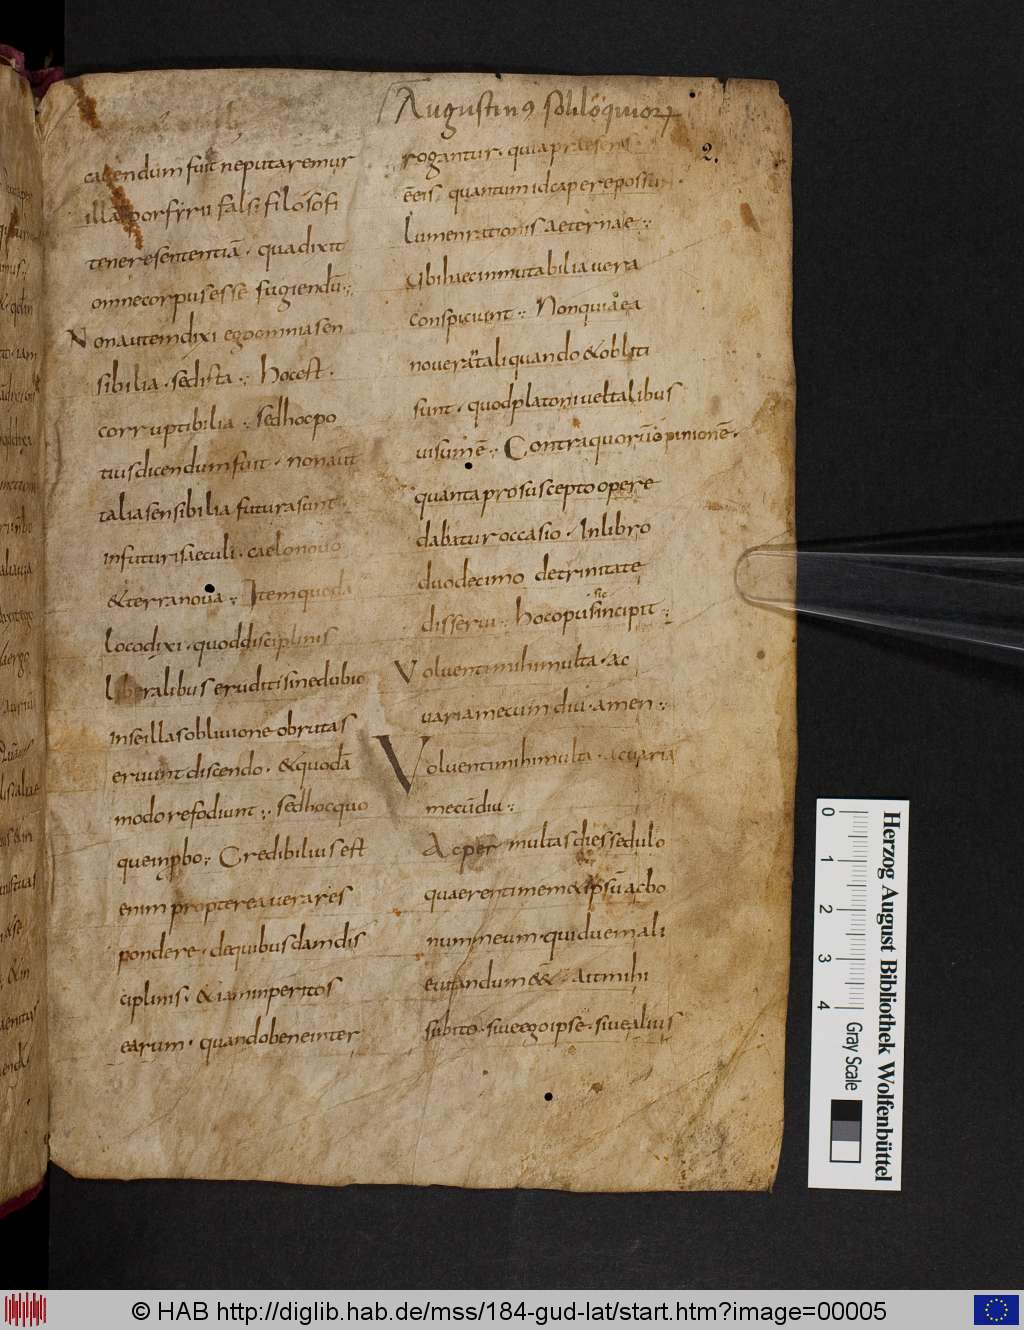 Augustinꝰ soliloquiorꝝ
2.
cauendum fuit neputaremur
illā porfyrii falsi filosofi
teneresententiā · quadixit
omnecorpusesse fugiendū ·,
Nonautemdixi egoomniasen
sibilia · sedista ·, hocest ·
corruptibilia · sedhocpo
tiusdicendumfuit · nonaut̄
taliasensibilia futurasunt ·
infuturisaeculi · caelonouo
&terranoua ·, Itemquoda
locodixi · quoddisciplinis
liberalibus eruditisinedubio
inseillasobliuione obrutas
eruuntdiscendo · &quodā
modorefodiunt ·, sedhocquo
quemp̱bo ·, Credibiliusest
enim proptereaverares
pondere · dequibusdamdis
ciplinis · &iaminperitos
earum · quandobeneinter
rogantur · quiapraesens
ēeis, quantumidcaperepossunt ·
lumenrationisaeternae ·,
Ubihaecinmutabiliauera
conspiciunt ·, Nonquia ea
noueraNtaliquando &obliti
sunt · quodplatoniueltalibus
uisumē ·, Contraquorūopinionē ·
quantaprosusceptoopere
dabaturoccasio · Inlibro
duodecimo detrinitate
disserui ·, hocopus sic incipit ·,
Voluentimihimulta · ac
uariamecum diu · amen ·,
Voluentimihimulta · acuaria
mecūdiu ·,
Acper multasdiessedulo
quaerentimem&ipsū acbo
nummeum · quiduemali
euitandum e&̄ · aitmihi
subito · siueegoipse · siuealius
0 1 2 3 4
Gray Scale
Herzog August Bibliothek Wolfenbüttel
© HAB http://diglib.hab.de/mss/184-gud-lat/start.htm?image=00005